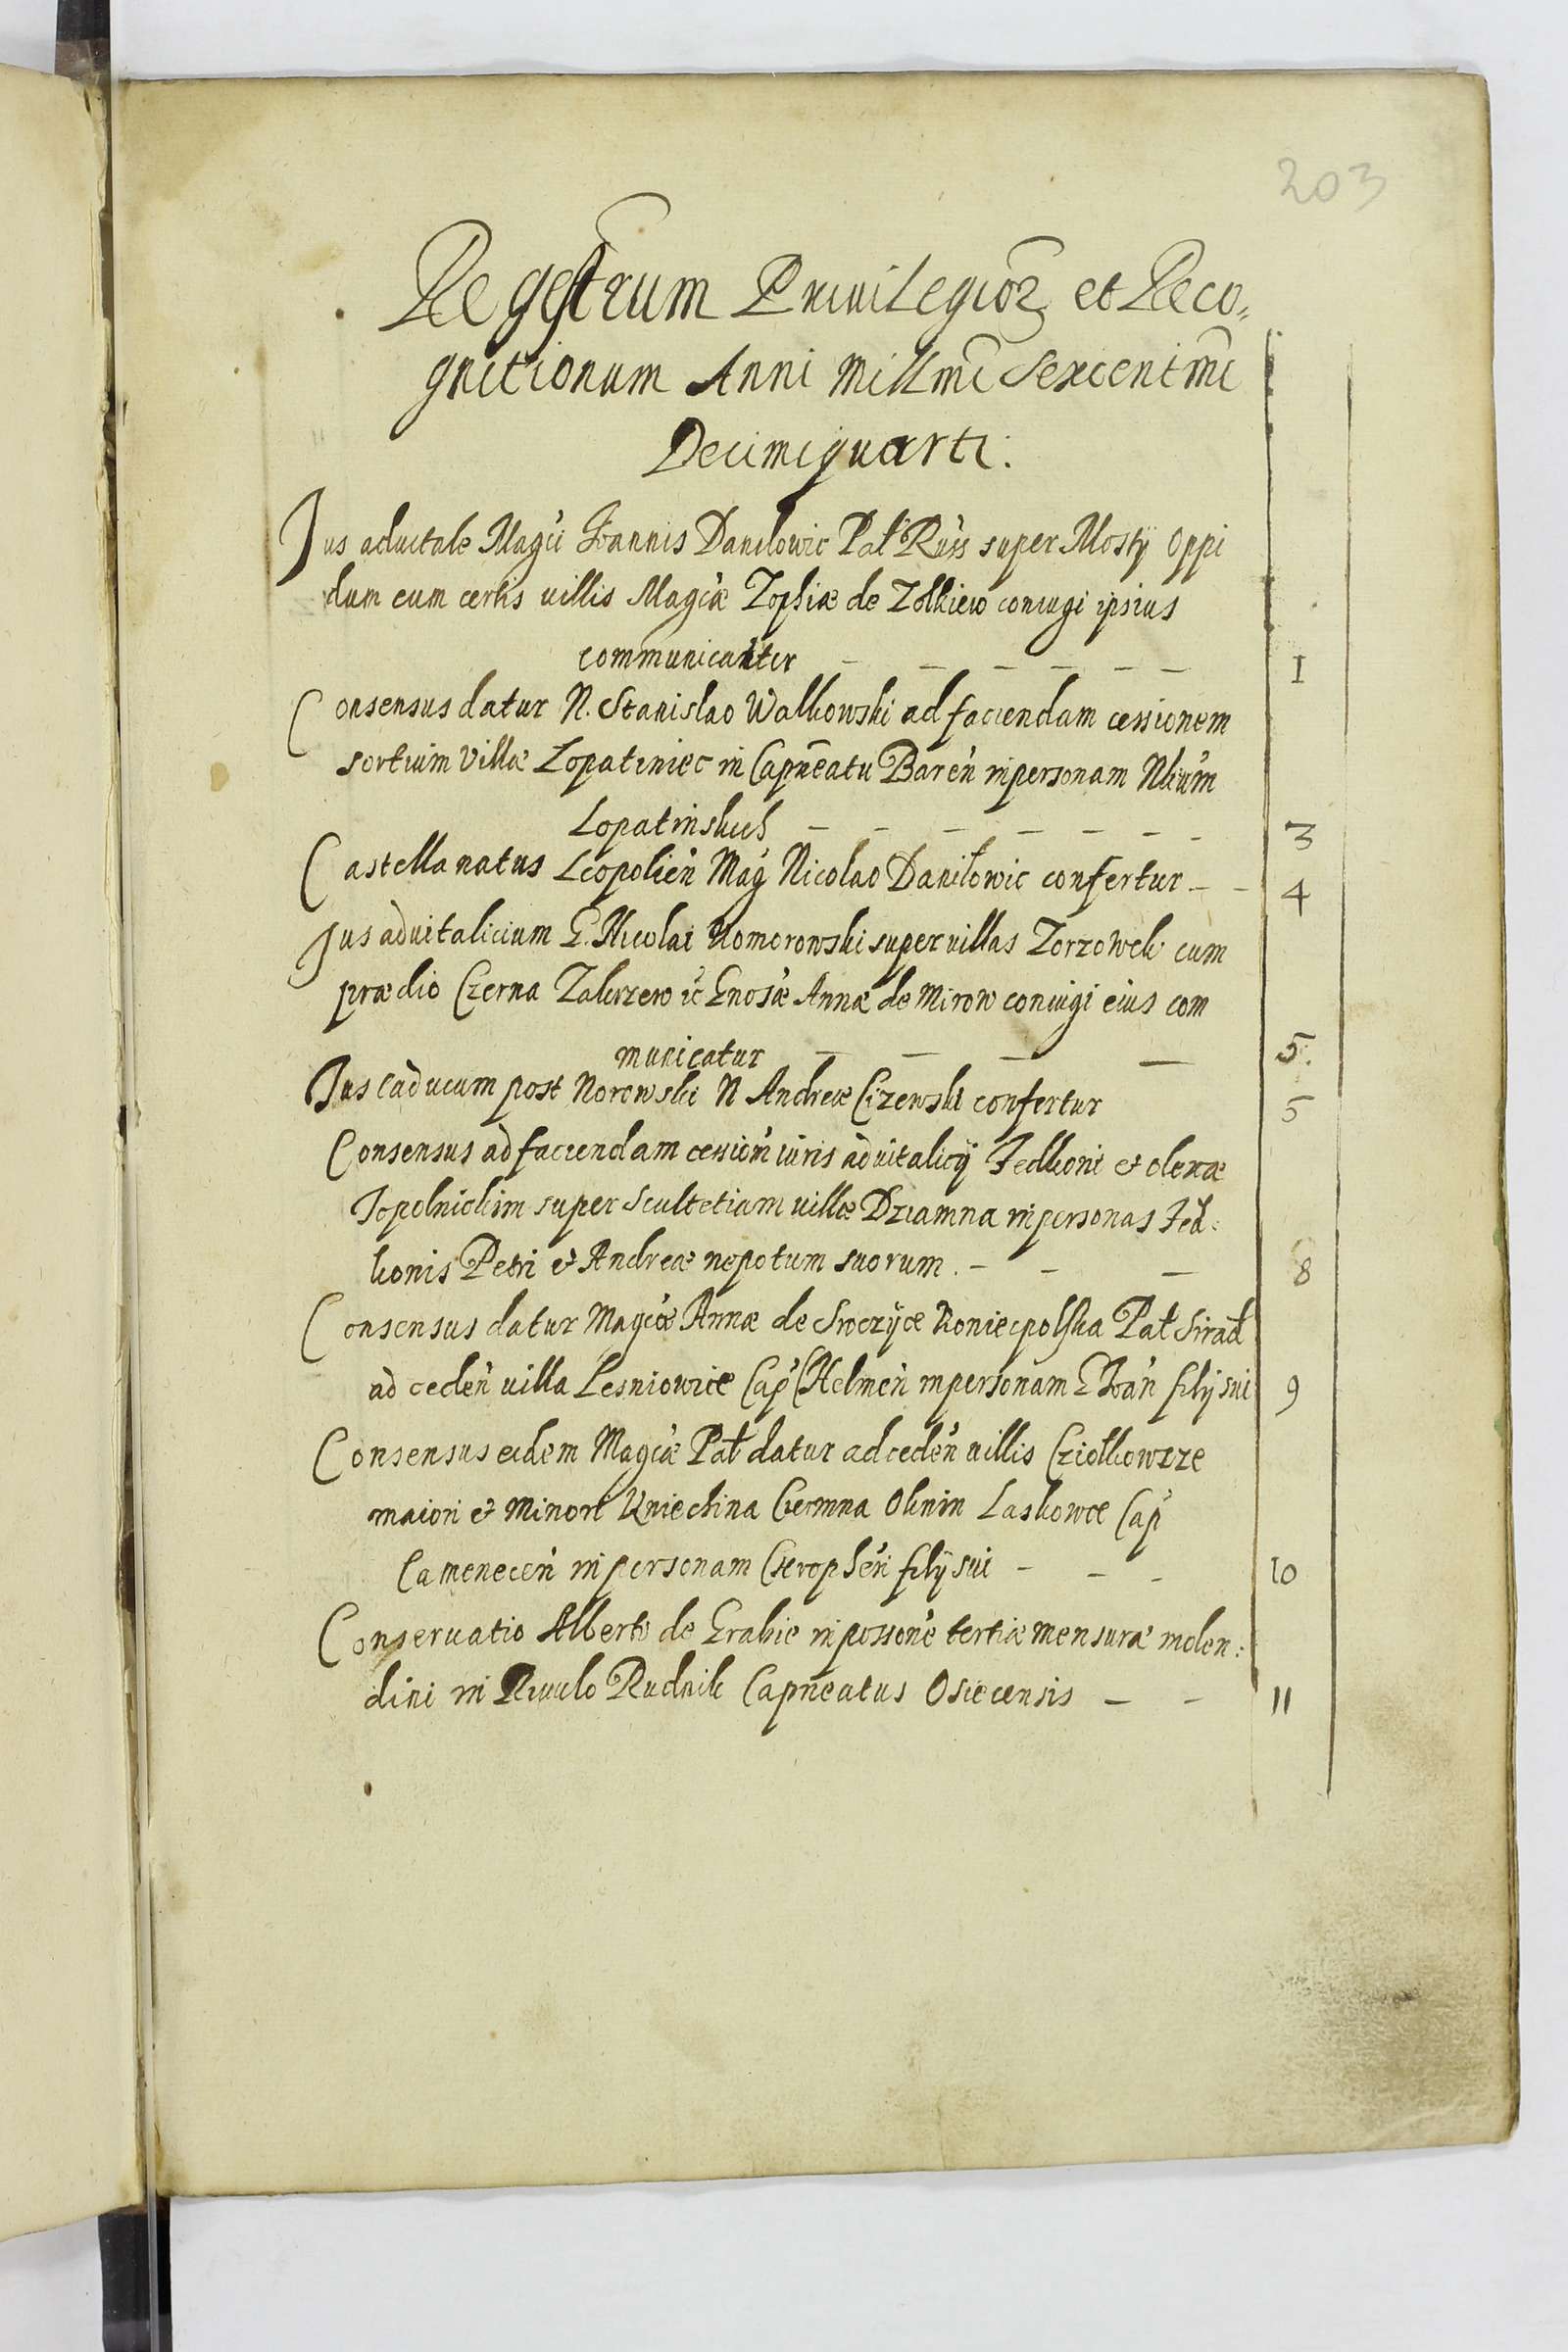 203
Regestrum Priuilegior et Reco„
gnitionum Anni Millmi Sexcentmi
Decimiquarti.
Jus aduitale Magci Joannis Daniłowic Pał Russ super Mosty Oppi
dum cum certis uillis Magcæ Zophiæ de Zołkiew coniugi ipsius
communicatur - - - - - - 1
Consensus datur N. Stanislao Walkowski ad faciendam cessionem
sortium Villæ Łopatiniec in Capneatu Baren in personam Nlium
Lopatinskich - - - - - - - 3
Castellanatus Leopolien Mag Nicolao Daniłowic confertur - - 4
Jus aduitalicium G. Nicolai Komorowski super uillas Zorzowek cum
prædio Czerna Zakrzew ic Gnosæ Annæ de Mirow coniugi eius com
municatur - - - - 5.
Jus caducum post Norowski N Andreæ Cizewski confertur 5
Consensus ad faciendam cession iuris aduitalicij Fedkoni et olexæ
Topolnickim super Scultetiam uillæ Dziamna in personas Fed:
konis Petri et Andreæ nepotum suorum. - - - 8
Consensus datur Magcæ Annæ de Sroczyce Koniecpolska Pał Sirad
ad ceden uilla Lesniowice Cap Chelmen in personam G Joan filij sui 9
Consensus eidem Magcæ Pał datur ad ceden uillis Cziołkowzze
maiori et Minori Kniechina Germna Oknin Laskowce Cap
Camenecen in personam Christophori filij sui - - - 10
Conseruatio Alberto de Grabie in possone tertiæ mensuræ molen:
dini in Riuulo Rudnik Capneatus Osiecensis - - 11